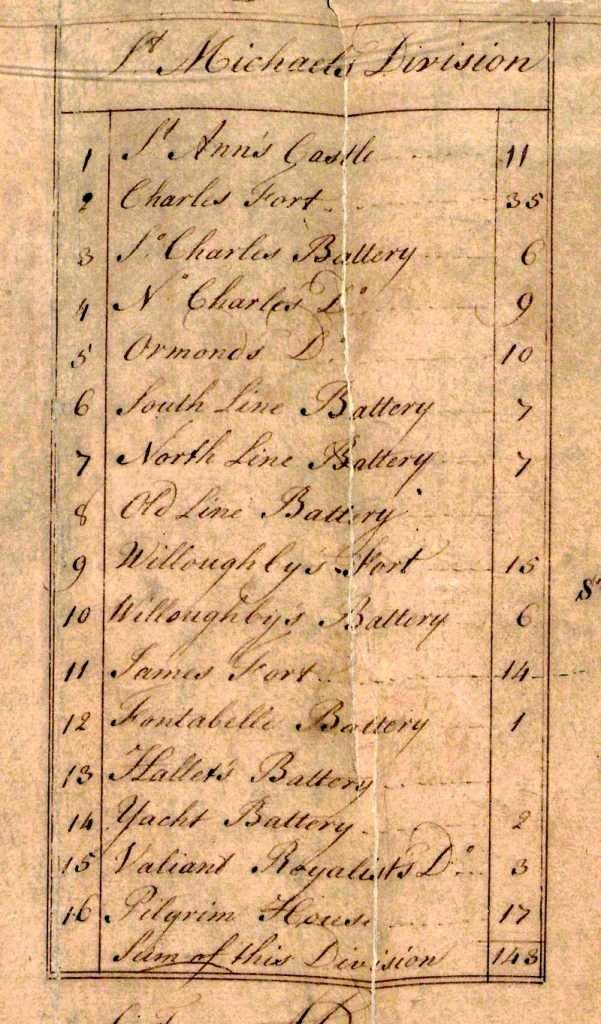 St Michael's Division
1 St Ann's Castle 11
2 Charles Fort 35
3 So Charles Battery 6
4 No Charles Do 9
5 Ormonds Do 10
6 South Line Battery 7
7 North Line Battery 7
8 Old Line Battery
9 Willoughby's Fort 15
10 Willoughby's Battery 6
11 James Fort 14
12 Fontabelle Battery 1
13 Hallet's Battery
14 Yacht Battery 2
15 Valiant Royalists Do 3
16 Pilgrim House 17
Sum of this Division 143